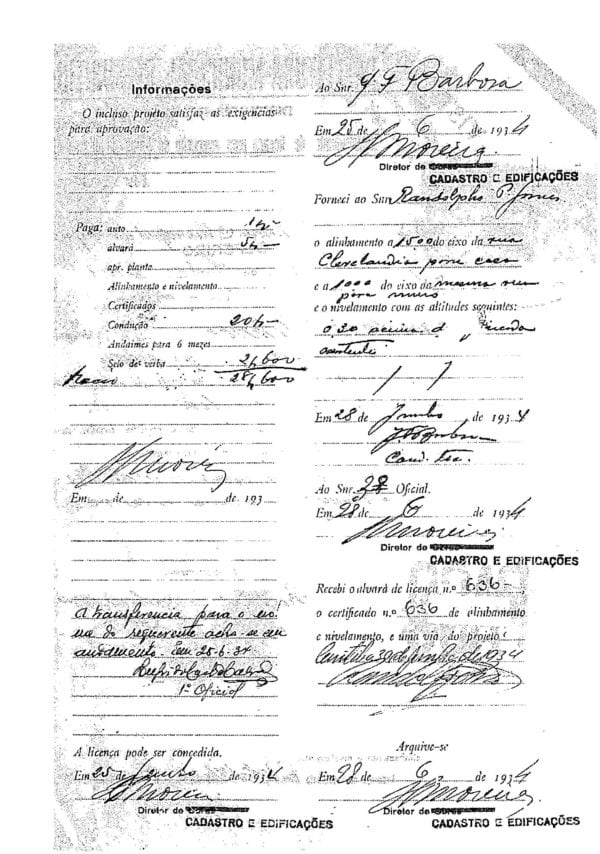 Informações
O incluso projeto satisfaz as exigencias
para aprovação:
Paga: auto 1$-
alvará 5$-
apr. planta
Alinhamento e nivelamento
Certificados
Condução 20$-
Andaimes para 6 mezes
Selo de verba 2$600
28$600
Em de de 193
A transferencia para o no-
me do requerente acha-se em
andamento. Em 25-6-34
1º Oficial
A licença pode ser concedida.
Em 25 de Junho de 1934
Moreira
Diretor do
CADASTRO E EDIFICAÇÕES
Ao Snr. J F Barboza
Em 25 de 6 de 1934
Moreira
Diretor do
CADASTRO E EDIFICAÇÕES
Forneci ao Snr. Randolpho
o alinhamento a 1500 do eixo da rua
Clevelandia para casa
e a 1000 do eixo da mesma rua
para muro
e o nivelamento com as altitudes seguintes:
0.20 acima d
Em 28 de Junho de 1934
Ao Snr. Oficial.
Em 28 de 6 de 1934
Moreira
Diretor do
CADASTRO E EDIFICAÇÕES
Recebi o alvará de licença n.o 636-
o certificado n.o 636 de alinhamento
e nivelamento, e uma via do projeto
Curitiba 30 de Junho de 1934
Arquive-se
Em 28 de 6 de 1934
Moreira
Diretor do
CADASTRO E EDIFICAÇÕES